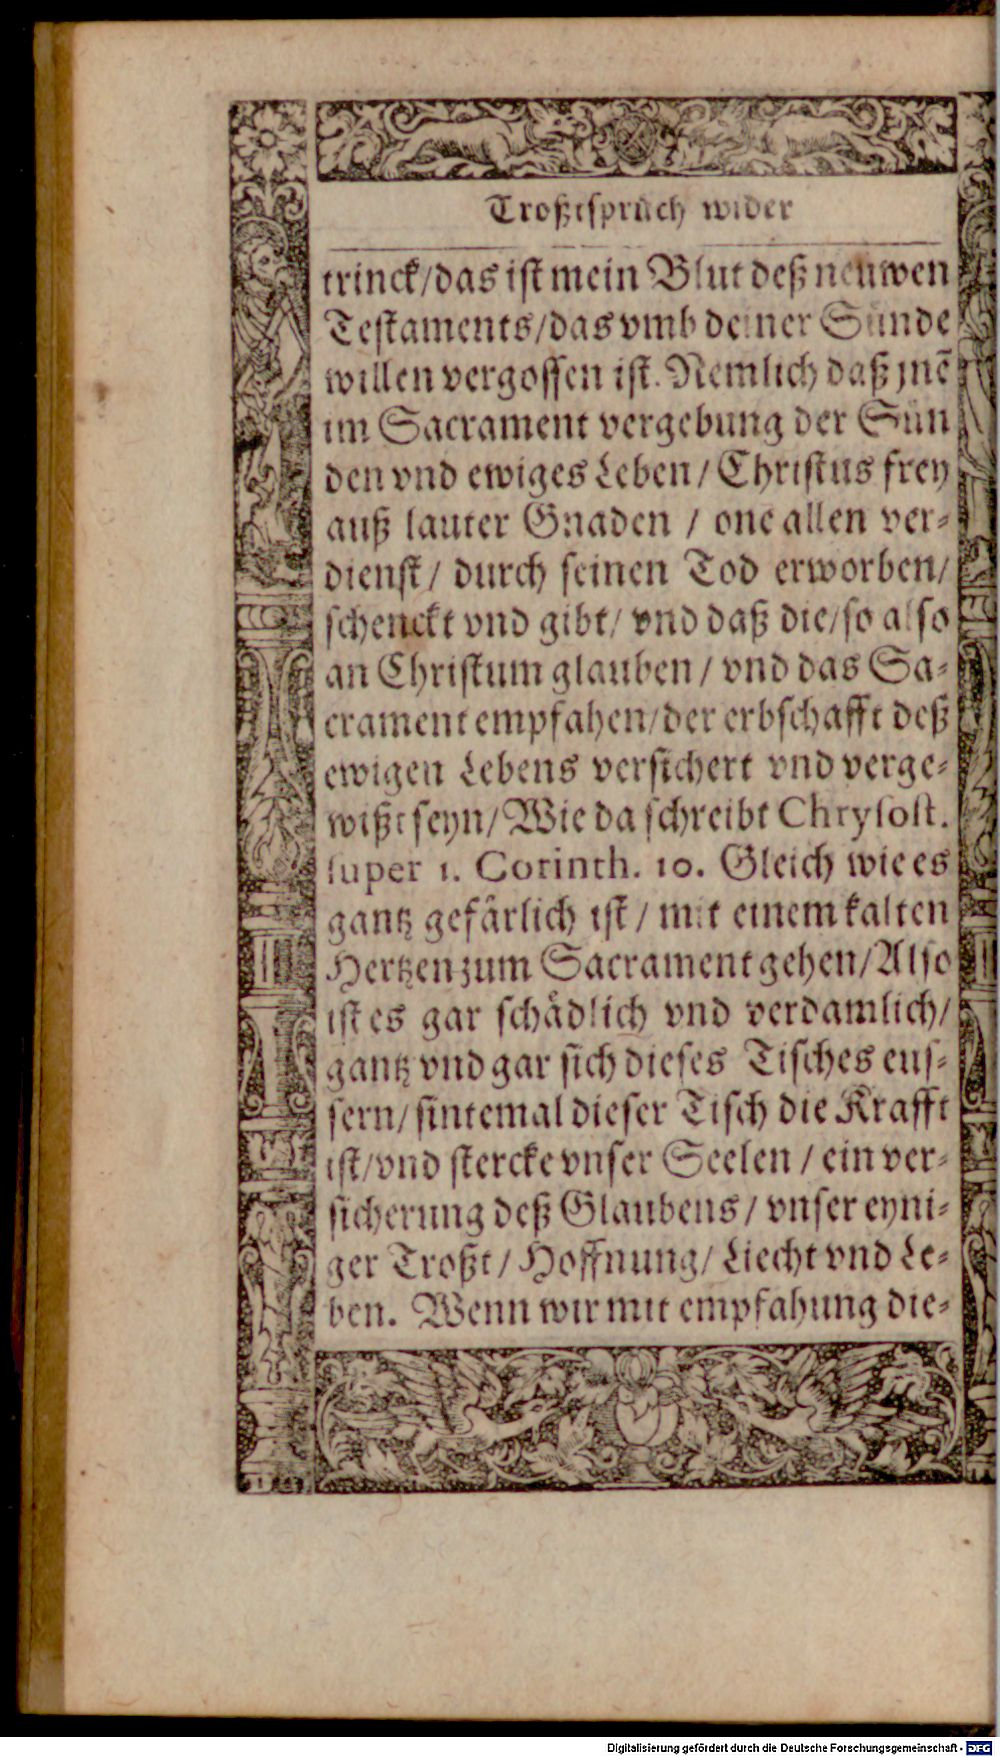 Troſztſprüch wider
trinck/das iſt mein Blut deß neuwen
Teſtaments/das vmb deiner Sünde
willen vergoſſen iſt. Nemlich daß jnē
im Sacrament vergebung der Sün
den vnd ewiges Leben/ Chriſtus frey
auß lauter Gnaden / one allen ver⸗
dienſt/ durch ſeinen Tod erworben/
ſchenckt vnd gibt/ vnd daß die/ſo alſo
an Chriſtum glauben/ vnd das Sa⸗
crament empfahen/der erbſchafft deß
ewigen Lebens verſichert vnd verge⸗
wißt ſeyn/ Wie da ſchreibt Chryſoſt.
ſuper 1. Corinth. 10. Gleich wie es
gantz gefårlich iſt/ mit einem kalten
Hertzen zum Sacrament gehen/Alſo
iſt es gar ſchådlich vnd verdamlich/
gantz vnd gar ſich dieſes Tiſches euſ⸗
ſern/ ſintemal dieſer Tiſch die Krafft
iſt/vnd ſtercke vnſer Seelen / ein ver⸗
ſicherung deß Glaubens/ vnſer eyni⸗
ger Troßt/ Hoffnung/ Liecht vnd Le⸗
ben. Wenn wir mit empfahung die⸗
Digitalisierung gefördert durch die Deutsche Forschungsgemeinschaft - DFG